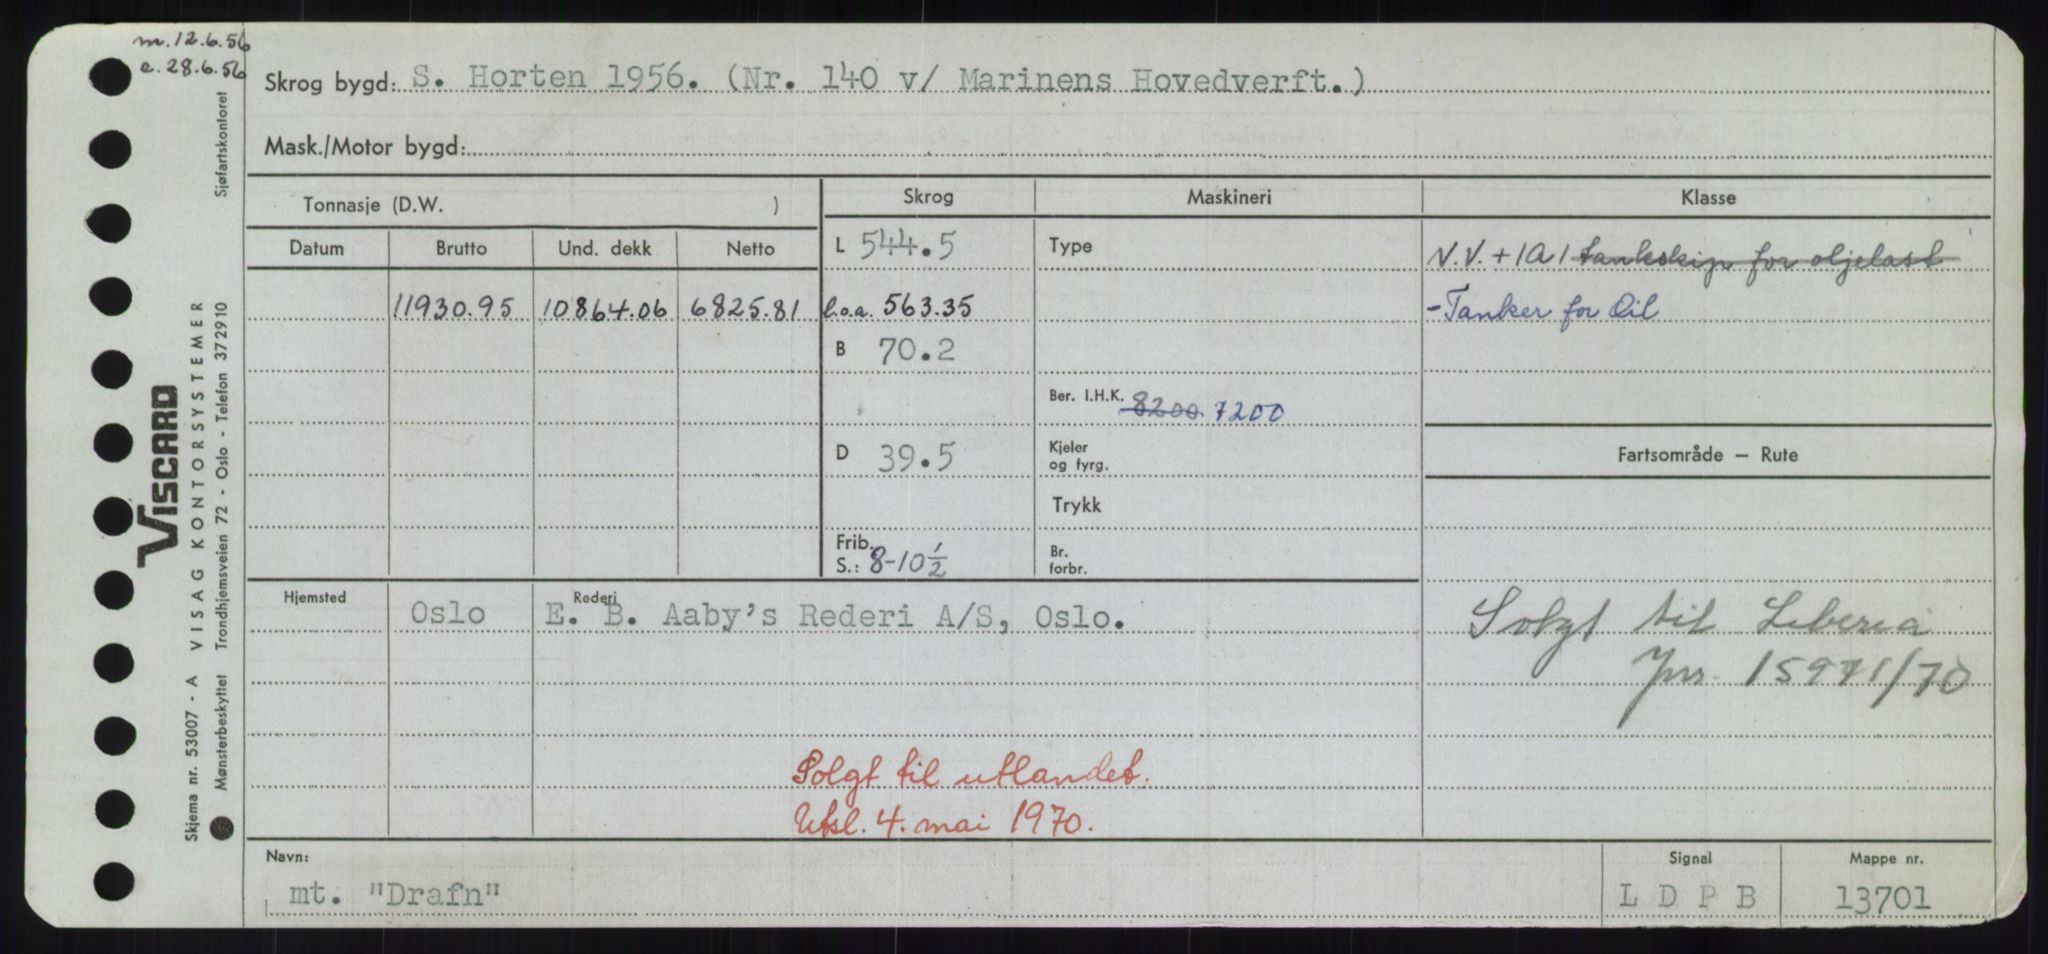 m. 12.6.56
e. 28.6.56
Skrog bygd: S. Horten 1956. (Nr. 140 v/ Marinens Hovedverft.)
Mask./Motor bygd:
Tonnasje (D.W. )
Skrog
Maskineri
Klasse
Datum Brutto Und. dekk Netto
L 544.5
Type
N.V. + 1A1 tankskip for oljelast
11930.95 10864.06 6825.81
l.o.a. 563.35
- Tanker for Oil
B 70.2
Ber. I.H.K. 8200. 7200
D 39.5
Kjeler og fyrg.
Fartsområde – Rute
Trykk
Frib. S.: 8-10 1/2
Br. forbr.
Hjemsted Oslo
Rederi E. B. Aaby's Rederi A/S, Oslo.
Solgt til Liberia
Jnr. 15971/70
Solgt til utlandet.
Utsl. 4. mai 1970.
Navn: mt. "Drafn"
Signal LDPB
Mappe nr. 13701
Sjøfartskontoret
VISCARD
Skjema nr. 53007 - A VISAG KONTORSYSTEMER
Mønsterbeskyttet Trondhjemsveien 72 - Oslo - Telefon 372910